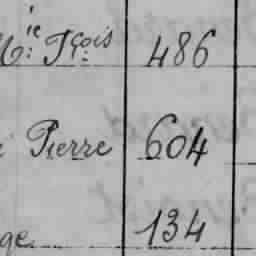 Mie Fçois 486
Pierre 604
ge 134